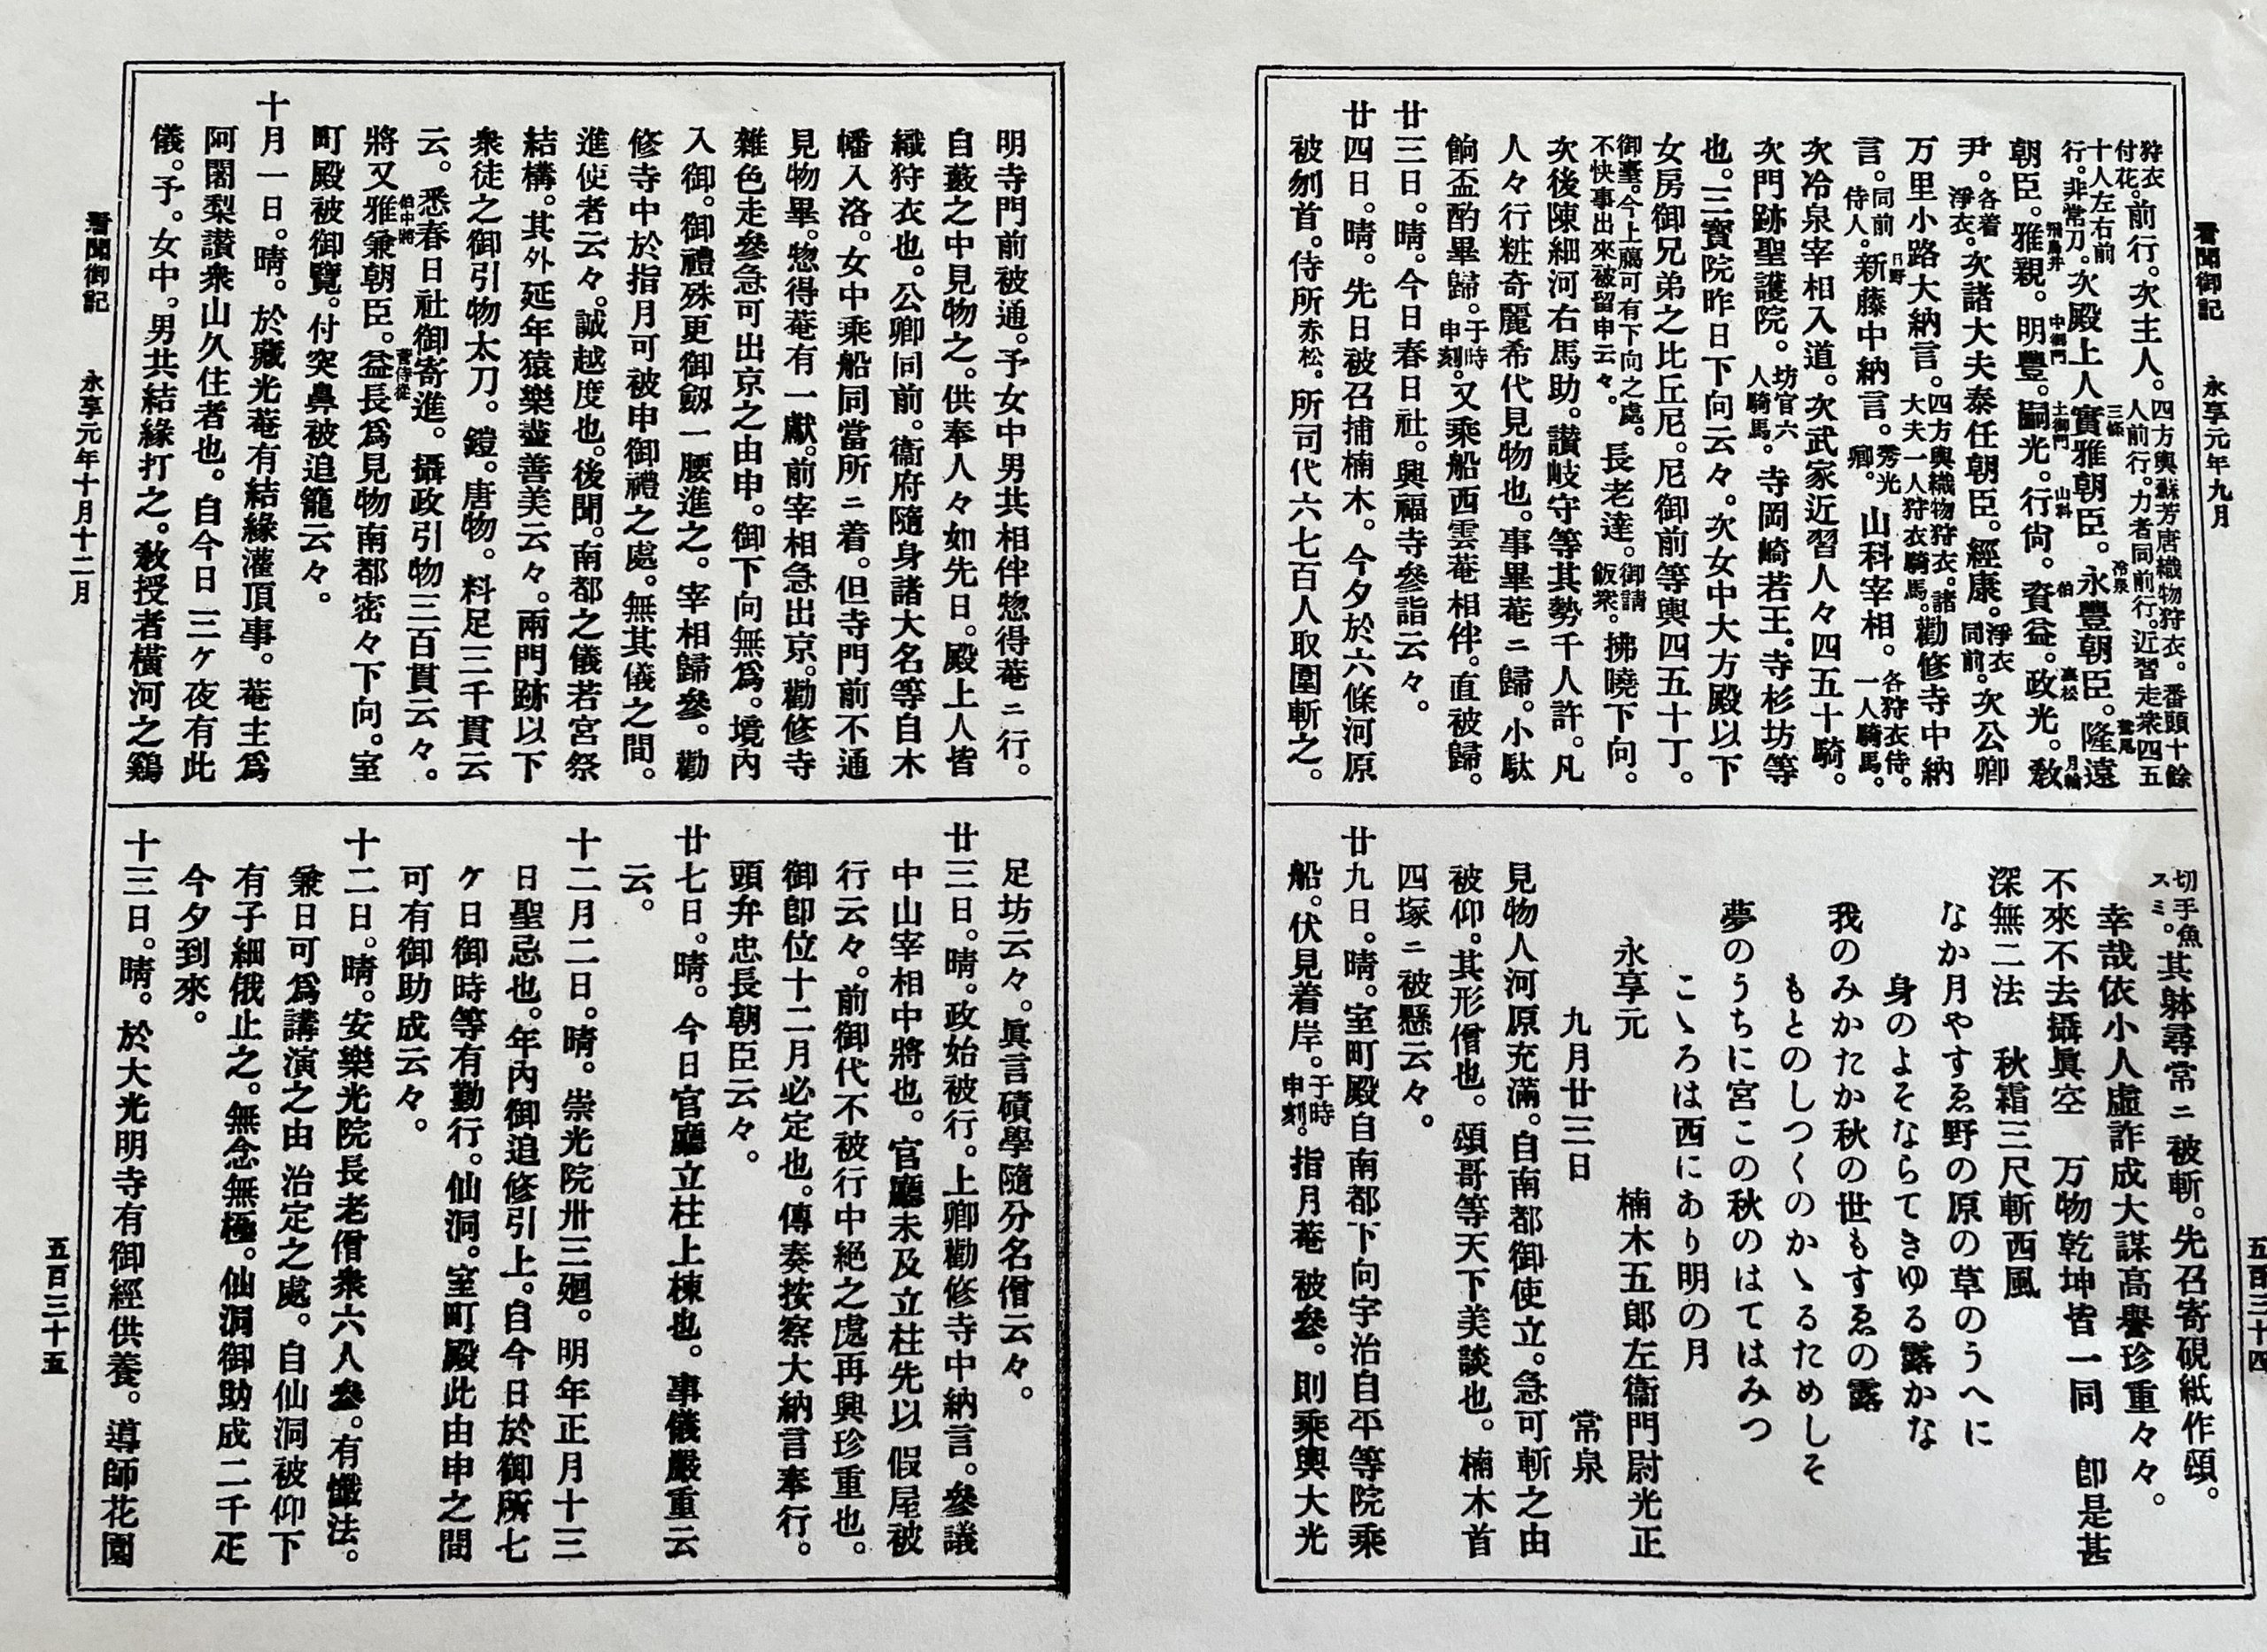 看聞御記　永享元年九月
五百三十四
狩衣付花。前行。次主人。四方輿蘇芳唐織物狩衣。番頭十餘人前行。力者同前行。近習走衆四五
十人左右前行。非常刀。次殿上人實雅朝臣。三條 永豐朝臣。冷泉 隆遠鷲尾
朝臣。雅親。飛鳥井 明豐。中御門 嗣光。土御門 行尙。山科 資益。伯 政光。裏松 敎月輪
尹。各着淨衣。次諸大夫泰任朝臣。經康。淨衣同前。次公卿
万里小路大納言。四方輿織物狩衣。諸大夫一人狩衣騎馬。勸修寺中納
言。同前侍人。新藤中納言。日野 秀光卿。山科宰相。各狩衣侍。一人騎馬。
次冷泉宰相入道。次武家近習人々四五十騎。
次門跡聖護院。坊官六人騎馬。寺岡崎若王。寺杉坊等
也。三寶院昨日下向云々。次女中大方殿以下
女房御兄弟之比丘尼。尼御前等輿四五十丁。
御臺。今上﨟可有下向之處。不快事出來被留申云々。長老達。御請飯衆。拂曉下向。
次後陳細河右馬助。讃岐守等其勢千人許。凡
人々行粧奇麗希代見物也。事畢菴ニ歸。小駄
餉盃酌畢歸。于時申刻。又乘船西雲菴相伴。直被歸。
廿三日。晴。今日春日社。興福寺參詣云々。
廿四日。晴。先日被召捕楠木。今夕於六條河原
被刎首。侍所赤松。所司代六七百人取圍斬之。
切手魚スミ。其躰尋常ニ被斬。先召寄硯紙作頌。
幸哉依小人虛詐成大謀高譽珍重々々。
不來不去攝眞空　万物乾坤皆一同　卽是甚
深無二法　秋霜三尺斬西風
なか月やすゑ野の原の草のうへに
身のよそならてきゆる露かな
我のみかたか秋の世もすゑの露
もとのしつくのかゝるためしそ
夢のうちに宮この秋のはてはみつ
こゝろは西にあり明の月
永享元　楠木五郎左衞門尉光正
九月廿三日　常泉
見物人河原充滿。自南都御使立。急可斬之由
被仰。其形僧也。頌哥等天下美談也。楠木首
四塚ニ被懸云々。
廿九日。晴。室町殿自南都下向宇治自平等院乘
船。伏見着岸。于時申刻。指月菴被參。則乘輿大光
明寺門前被通。予女中男共相伴惣得菴ニ行。
自藪之中見物之。供奉人々如先日。殿上人皆
織狩衣也。公卿同前。衞府隨身諸大名等自木
幡入洛。女中乘船同當所ニ着。但寺門前不通
見物畢。惣得菴有一獻。前宰相急出京。勸修寺
雜色走參急可出京之由申。御下向無爲。境內
入御。御禮殊更御劔一腰進之。宰相歸參。勸
修寺中於指月可被申御禮之處。無其儀之間。
進使者云々。誠越度也。後聞。南都之儀若宮祭
結構。其外延年猿樂盡善美云々。兩門跡以下
衆徒之御引物太刀。鎧。唐物。料足三千貫云
云。悉春日社御寄進。攝政引物三百貫云々。
將又雅兼朝臣。伯中將 益長爲見物南都密々下向。菅侍從 室
町殿被御覽。付突鼻被追籠云々。
十月一日。晴。於藏光菴有結緣灌頂事。菴主爲
阿闍梨讃衆山久住者也。自今日三ケ夜有此
儀。予。女中。男共結緣打之。敎授者橫河之鷄
足坊云々。眞言碩學隨分名僧云々。
廿三日。晴。政始被行。上卿勸修寺中納言。參議
中山宰相中將也。官廳未及立柱先以假屋被
行云々。前御代不被行中絕之處再興珍重也。
御卽位十二月必定也。傳奏按察大納言奉行。
頭弁忠長朝臣云々。
廿七日。晴。今日官廳立柱上棟也。事儀嚴重云
云。
十二月二日。晴。崇光院卅三廻。明年正月十三
日聖忌也。年內御追修引上。自今日於御所七
ケ日御時等有勤行。仙洞。室町殿此由申之間
可有御助成云々。
十二日。晴。安樂光院長老僧衆六人參。有懺法。
兼日可爲講演之由治定之處。自仙洞被仰下
有子細俄止之。無念無極。仙洞御助成二千疋
今夕到來。
十三日。晴。於大光明寺有御經供養。導師花園
看聞御記　永享元年十月十二月
五百三十五